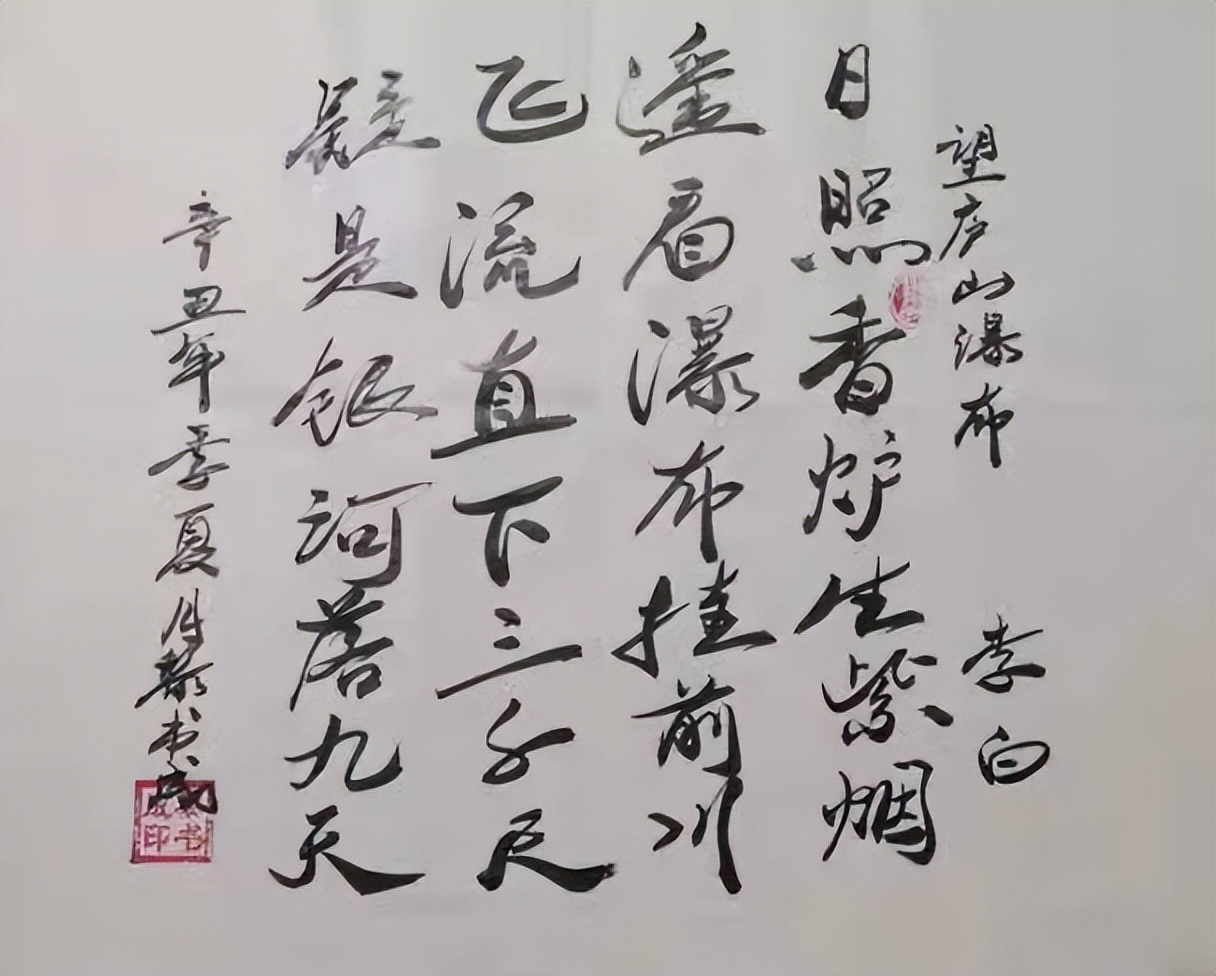 望庐山瀑布 李白
日照香炉生紫烟
遥看瀑布挂前川
飞流直下三千尺
疑是银河落九天
辛丑年季夏月 书成
书 印